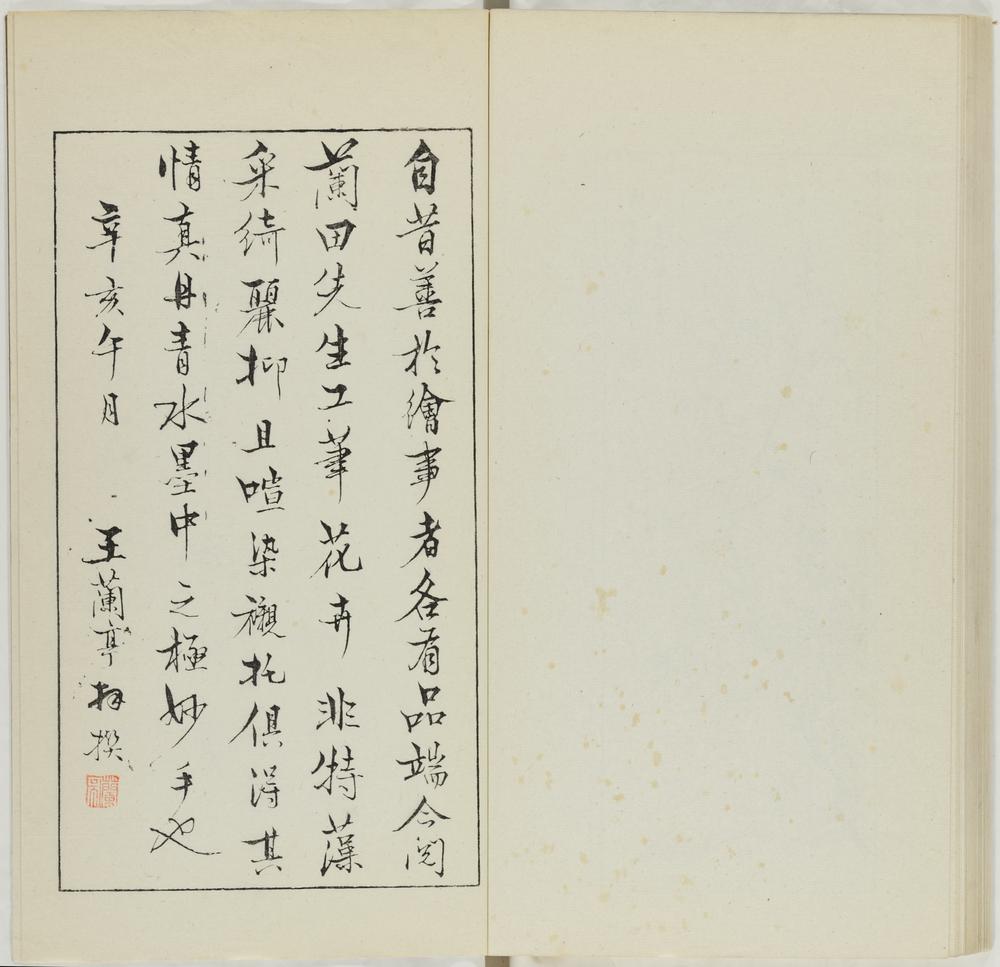 自昔善於繪事者各有品端今閱
蘭田先生工筆花卉非特藻
采綺麗抑且喧染襯托俱得其
情真丹青水墨中之極妙手也
辛亥午月 王蘭亭拜撰
蘭亭